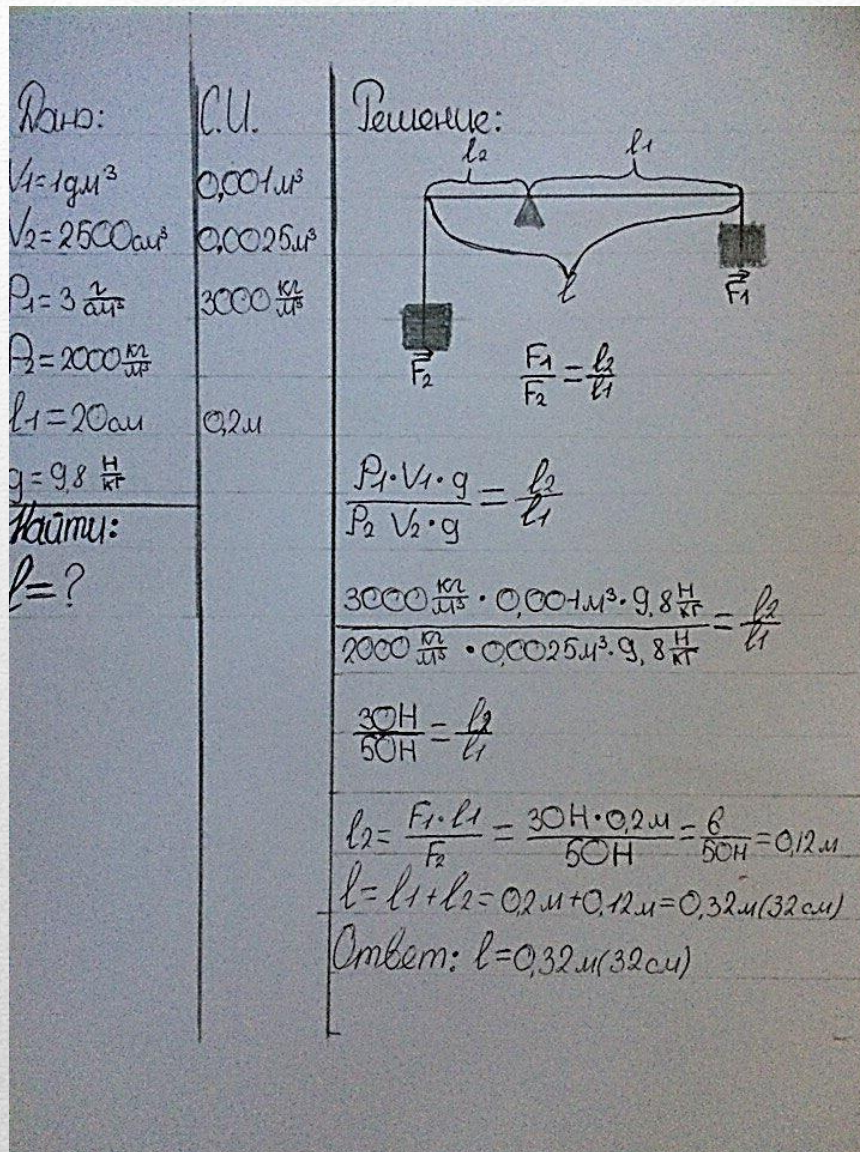 Дано:
V1=1дм³
V2=2500см³
ρ1=3 г/см³
ρ2=2000 кг/м³
l1=20см
g=9,8 Н/кг
Найти:
l=?
С.И.
0,001м³
0,0025м³
3000 кг/м³
0,2м
Решение:
l2 l1
l
F1
F2
F1/F2=l2/l1
ρ1·V1·g/ρ2 V2·g=l2/l1
3000 кг/м³·0,001м³·9,8 Н/кг/2000 кг/м³·0,0025м³·9,8 Н/кг=l2/l1
30Н/50Н=l2/l1
l2=F1·l1/F2=30Н·0,2м/50Н=6/50Н=0,12м
l=l1+l2=0,2м+0,12м=0,32м(32см)
Ответ: l=0,32м(32см)